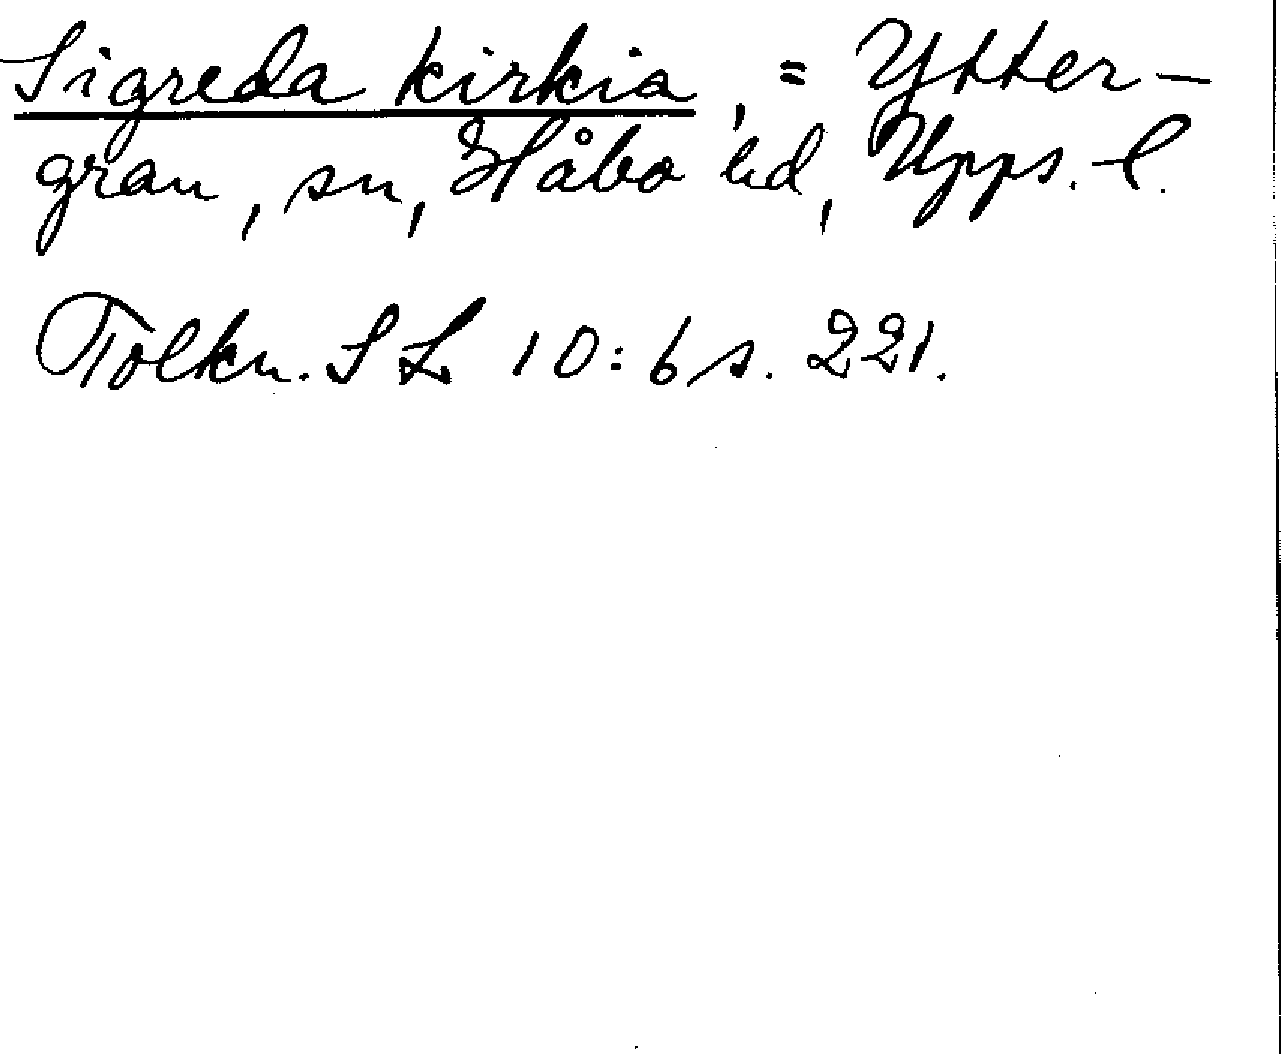 Sigreda kirkia, = Ytter-
gran, sn, Håbo hd, Upps. l.
Tolkn. SL 10:6 s. 221.